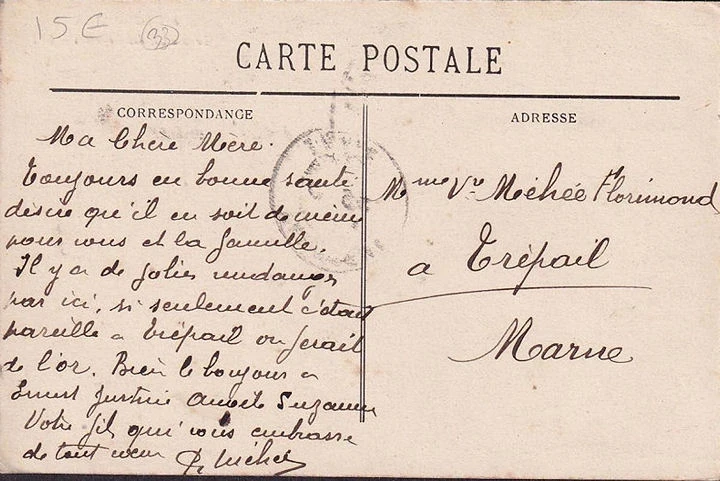 15 €
33
CARTE POSTALE
CORRESPONDANCE
ADRESSE
Ma Chère Mère.
Toujours en bonne santé
désire qu'il en soit de même
pour vous et la famille.
Il y a de jolies vendanges
par ici, si seulement c'était
pareille a Trépail on ferait
de l'or. Bien le bonjour a
Ernest Justine Suzanne
Votre fils qui vous embrasse
de tout cœur Méhée
Mme Vve Méhée Florimond
a Trépail
Marne